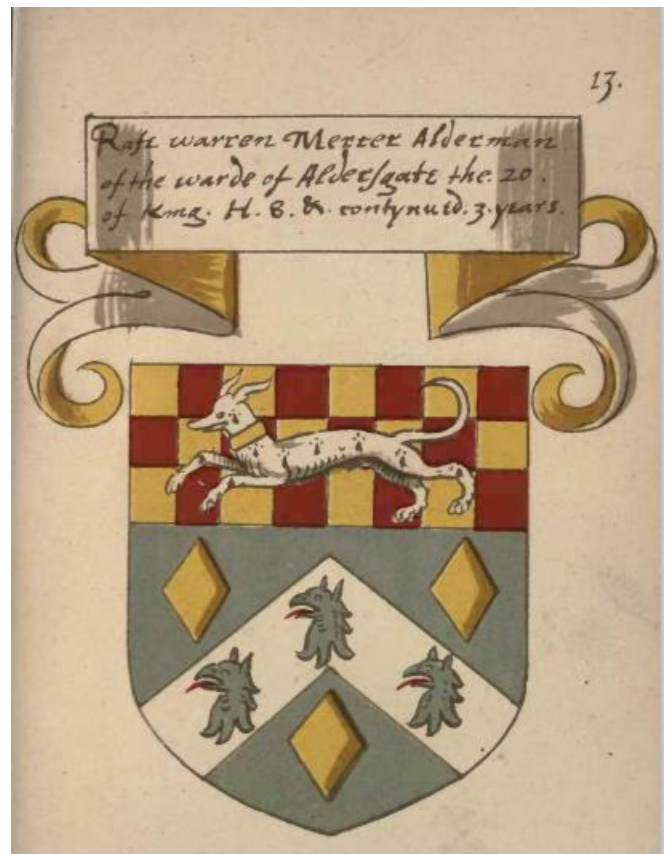 13.
Rafe warren Mercer Alderman
of the warde of Aldersgate the. 20.
of King. H. 8. &. contynued. 3. years.